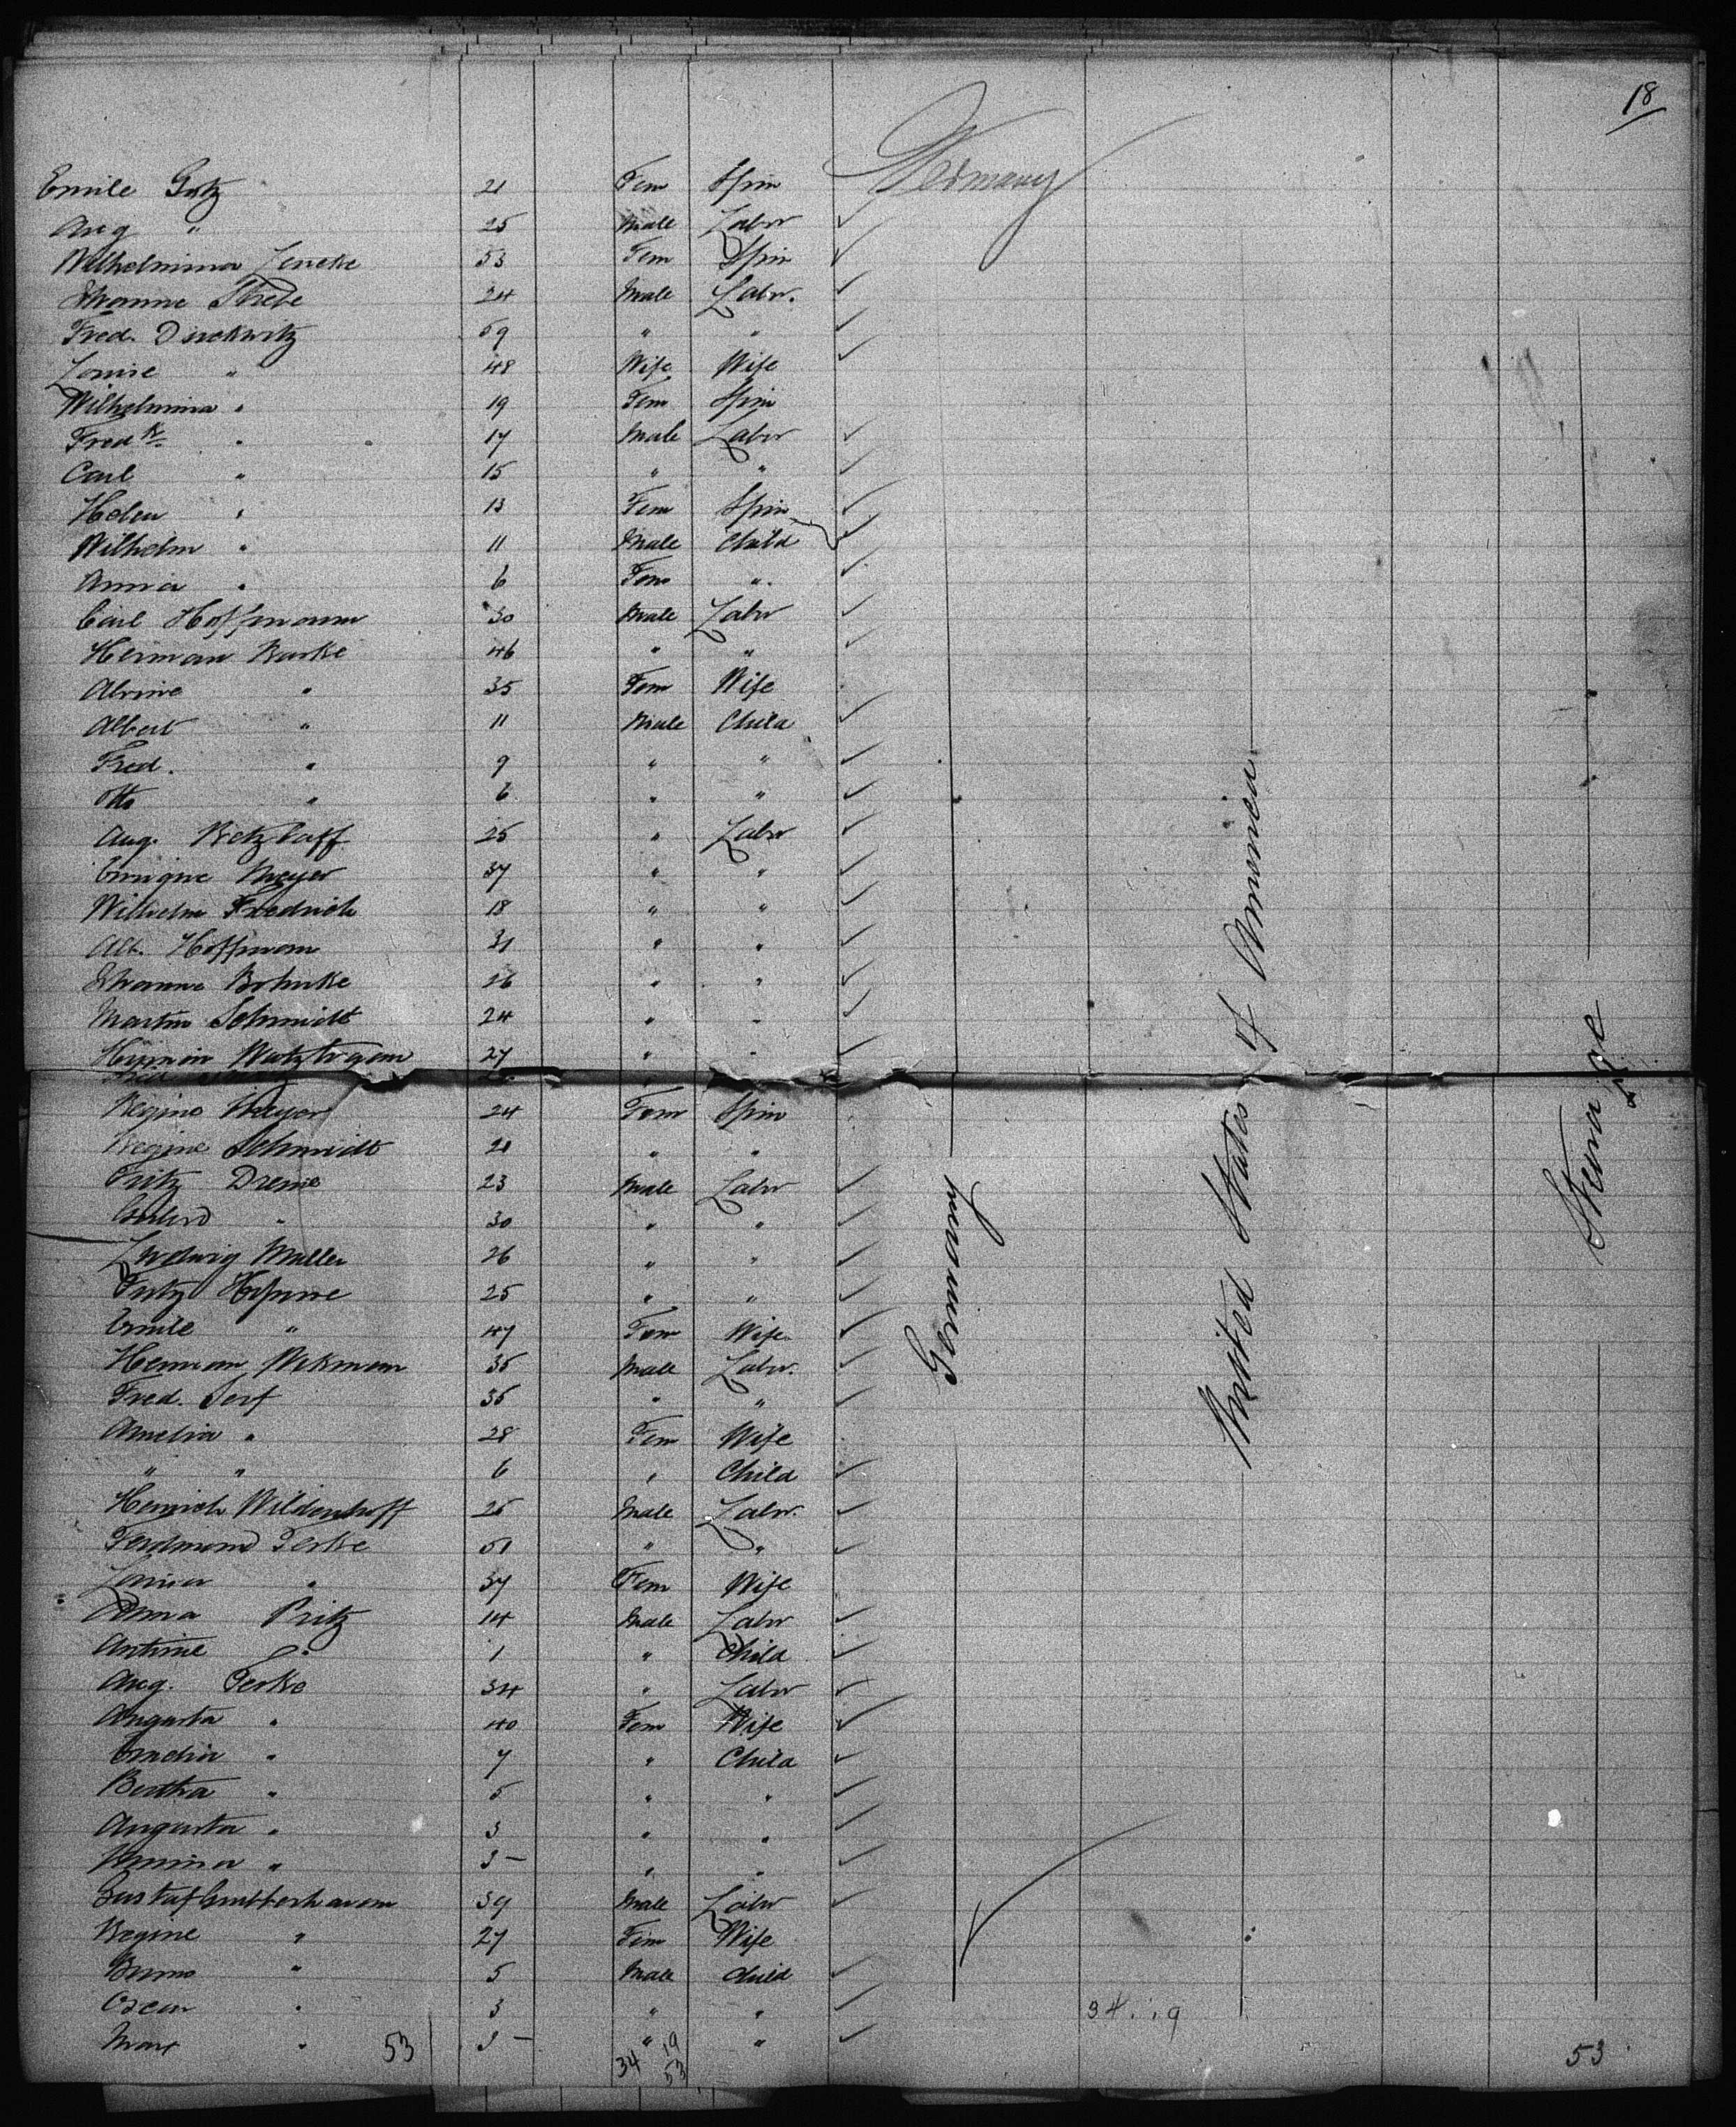 18
Emile Gotz 21 Fem Spin Germany
Aug " 25 Male Labr
Wilhelmina Zencke 53 Fem Spin
24 Male Labr.
Fred. 59 " "
Louise " 48 Wife Wife
Wilhelmina " 19 Fem Spin
Fredk " 17 Male Labr
Carl " 15 " "
Helen " 13 Fem Spin
Wilhelm " 11 Male Child
Anna " 6 Fem "
Carl Hoffmann 30 Male Labr
Herman Barke 46 " "
Alvine " 35 Fem Wife
Albert " 11 Male Child
Fred. " 9 " "
Otto " 6 " "
Aug. Retzlaff 25 " Labr
Meyer 37 " "
Wilhelm Fredrich 18 " "
Alb. Hoffman 31 " "
Bohnke 26 " "
Martin Schmidt 24 " "
27 " "
Fred
Regine Meyer 24 Fem Spin
Regine Schmidt 21 " "
Fritz Drews 23 Male Labr
" 30 " "
Ludwig Muller 26 " "
Fritz 25 " "
Emile " 47 Fem Wife
Herman Wekman 35 Male Labr.
Fred. Serf 35 " "
Amelia " 28 Fem Wife
" " 6 " Child
Heinrich Wildenhoff 25 Male Labr.
Ferdinand Terke 51 " "
Louisa " 37 Fem Wife
Anna Pritz 14 Male Labr
" 1 " Child
Aug. Terke 34 " Labr
Augusta " 40 Fem Wife
Emelia " 7 " Child
Bertha " 5 " "
Augusta " 3 " "
Minna " 3 " "
Gustaf 39 Male Labr
Regine " 27 Fem Wife
Bruno " 5 Male Child
Oscar " 3 " "
Max " 3 " "
Germany
United States of America
Steerage
34 19
53
34 19
53
53